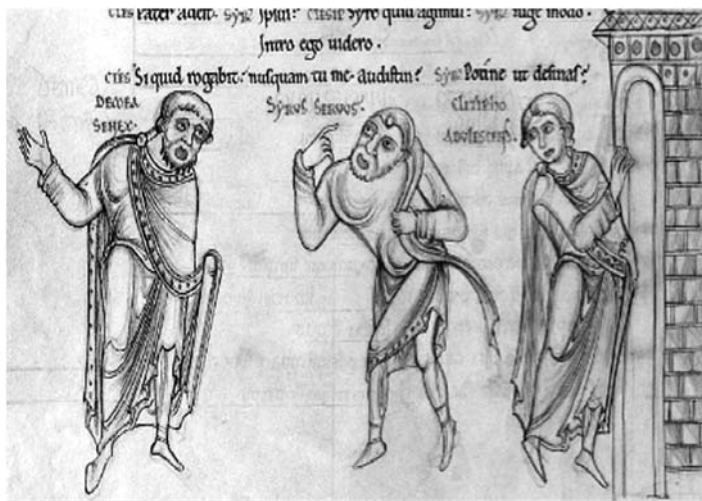 CTES Pater adest. SYR Ipsus? CTESIP Syre quid agimus? SYR fuge modo.
Intro ego uidero.
CTES Si quid rogabit. nusquam tu me. audistin? SYR Potine ut desinas?
DEMEA
SENEX.
SYRVS SERVOS.
CTESIPHO